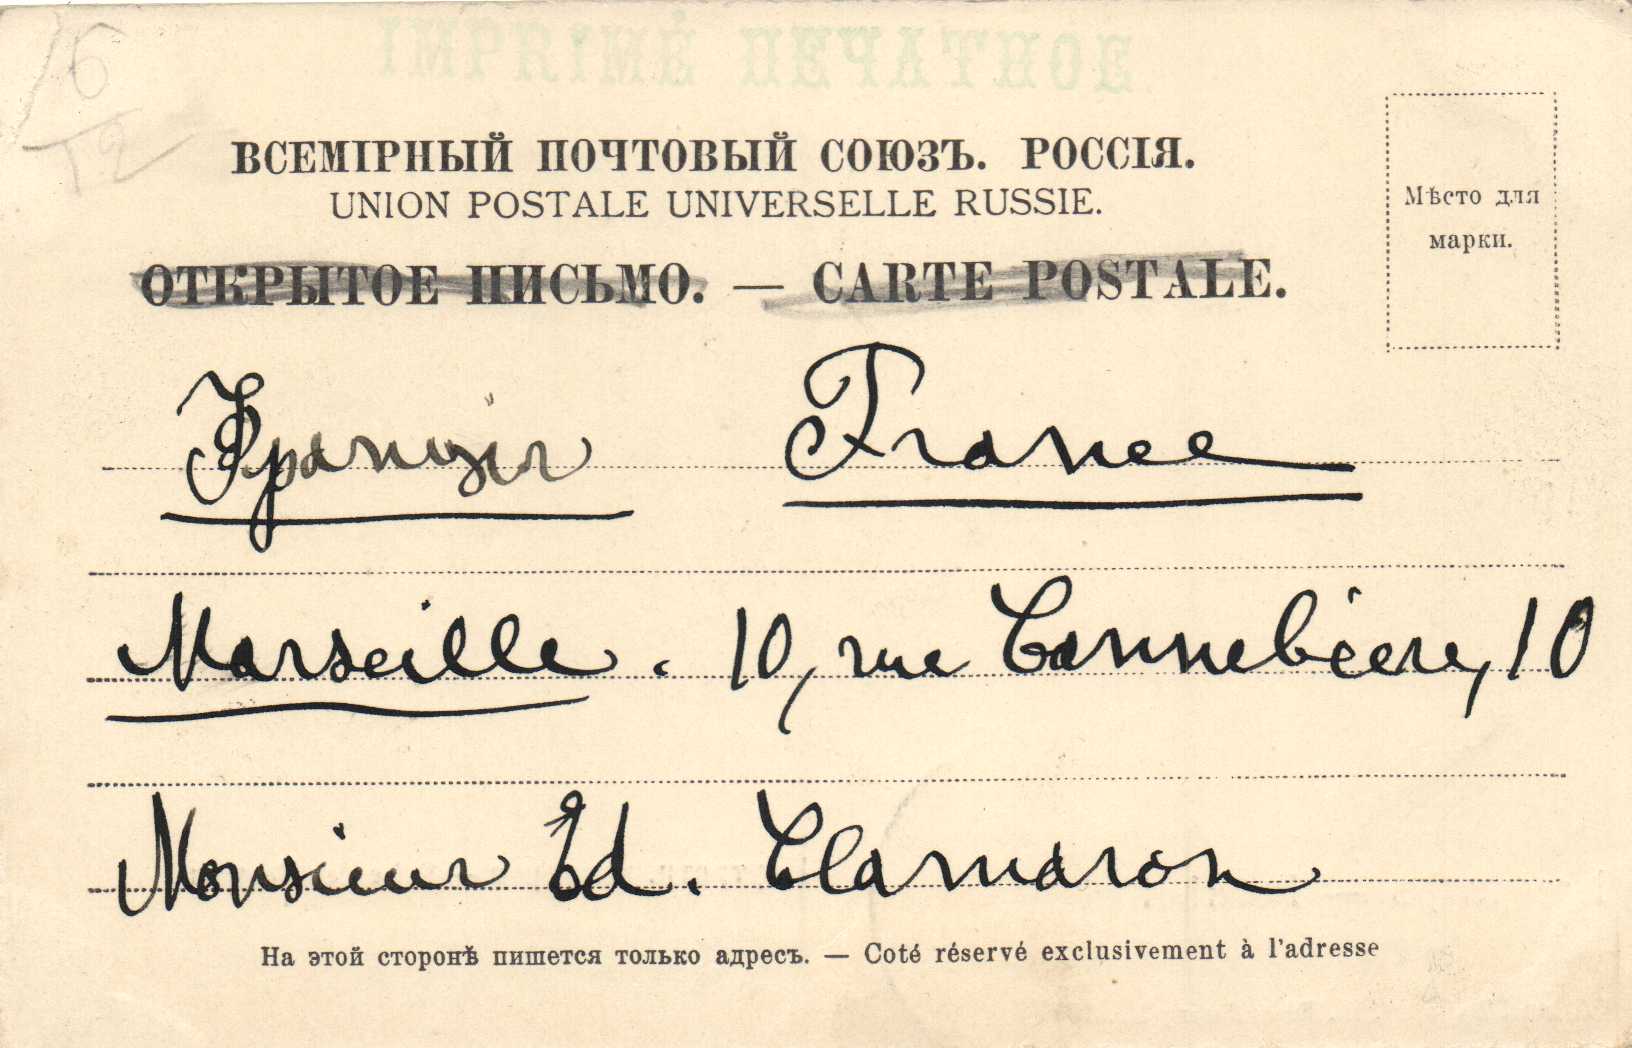 16
T2
IMPRIMÉ ПЕЧАТНОЕ
ВСЕМІРНЫЙ ПОЧТОВЫЙ СОЮЗЪ. РОССІЯ.
UNION POSTALE UNIVERSELLE RUSSIE.
Мѣсто для
марки.
ОТКРЫТОЕ ПИСЬМО. — CARTE POSTALE.
Франція France
Marseille. 10, rue Cannebière, 10
Monsieur Ed. Clamaron
На этой сторонѣ пишется только адресъ. — Coté réservé exclusivement à l'adresse